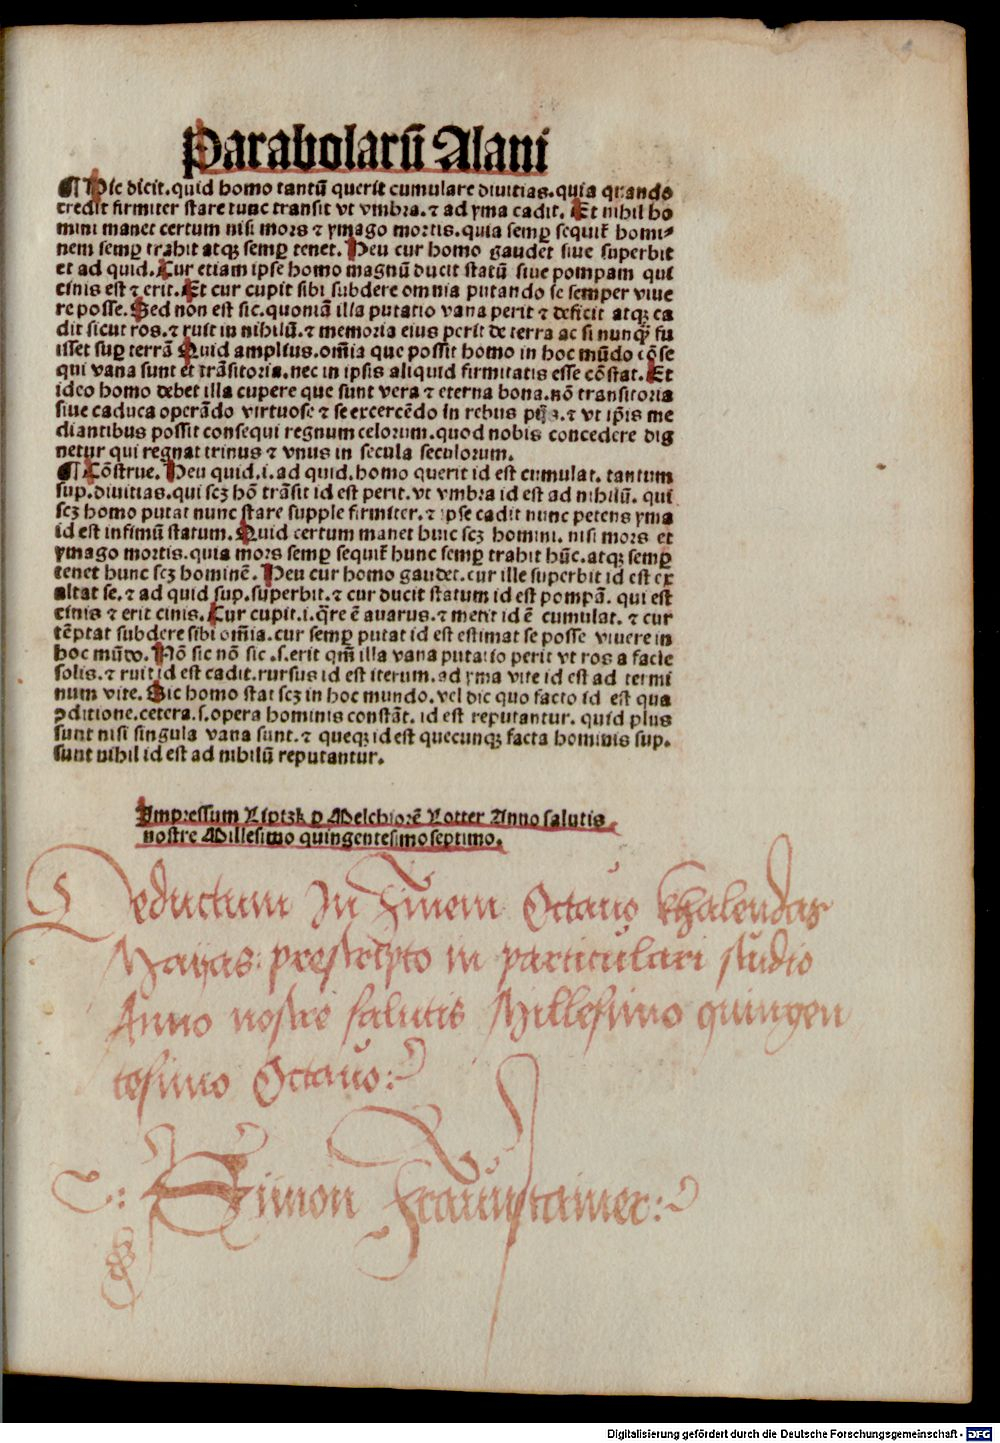 Parabolarū Alani
¶ Hic dicit. quid homo tantū querit cumulare diuitias. quia quando
credit firmiter stare tunc transit vt vmbra. ⁊ ad yma cadit. Et nihil ho
mini manet certum nisi mors ⁊ ymago mortis. quia semꝑ sequit᷑ homi⸗
nem semꝑ trahit atqꝫ semꝑ tenet. Heu cur homo gaudet siue superbit
et ad quid. Cur etiam ipse homo magnū ducit statū siue pompam qui
cinis est ⁊ erit. Et cur cupit sibi subdere omnia putando se semper viue
re posse. Sed non est sic. quoniā illa putatio vana perit ⁊ deficit atqꝫ ca
dit sicut ros. ⁊ ruit in nihilū. ⁊ memoria eius perit de terra ac si nunqͣꝫ fu
isset suꝑ terrā Quid amplius. om̄ia que possit homo in hoc mūdo cōse
qui vana sunt et trāsitoria. nec in ipsis aliquid firmitatis esse cōstat. Et
ideo homo debet illa cupere que sunt vera ⁊ eterna bona. nō transitoria
siue caduca operādo virtuose ⁊ se excercēdo in rebus ⁊ vt ip̄is me
diantibus possit consequi regnum celorum. quod nobis concedere dig
netur qui regnat trinus ⁊ vnus in secula seculorum.
¶ Cōstrue. Heu quid. i. ad quid. homo querit id est cumulat. tantum
sup. diuitias. qui scꝫ hō trāsit id est perit. vt vmbra id est ad nihilū. qui
scꝫ homo putat nunc stare supple firmiter. ⁊ ipse cadit nunc petens yma
id est infimū statum. Quid certum manet huic scꝫ homini. nisi mors et
ymago mortis. quia mors semꝑ sequit᷑ hunc semꝑ trahit hūc. atqꝫ semꝑ
tenet hunc scꝫ hominē. Heu cur homo gaudet. cur ille superbit id est ex
altat se. ⁊ ad quid sup. superbit. ⁊ cur ducit statum id est pompā. qui est
cinis ⁊ erit cinis. Cur cupit. i. q̄re ē auarus. ⁊ metit id ē cumulat. ⁊ cur
tēptat subdere sibi om̄ia. cur semꝑ putat id est estimat se posse viuere in
hoc mūdo. Nō sic nō sic .s. erit qm̄ illa vana putatio perit vt ros a facie
solis. ⁊ ruit id est cadit. rursus id est iterum. ad yma vite id est ad termi
num vite. Sic homo stat scꝫ in hoc mundo. vel dic quo facto id est qua
ꝯditione. cetera. s. opera hominis constāt. id est reputantur. quid plus
sunt nisi singula vana sunt. ⁊ queqꝫ id est quecunqꝫ facta hominis sup.
sunt nihil id est ad nihilū reputantur.
Impressum Liptzk ꝑ Melchiorē Lotter Anno salutis
nostre Millesimo quingentesimoseptimo.
Deductum In Finem Octauo Khalendas
Mayas: prescripto in particulari studio
Anno nostre salutis Millesimo quingen
tesimo Octauo:
Simon
Digitalisierung gefördert durch die Deutsche Forschungsgemeinschaft - DFG